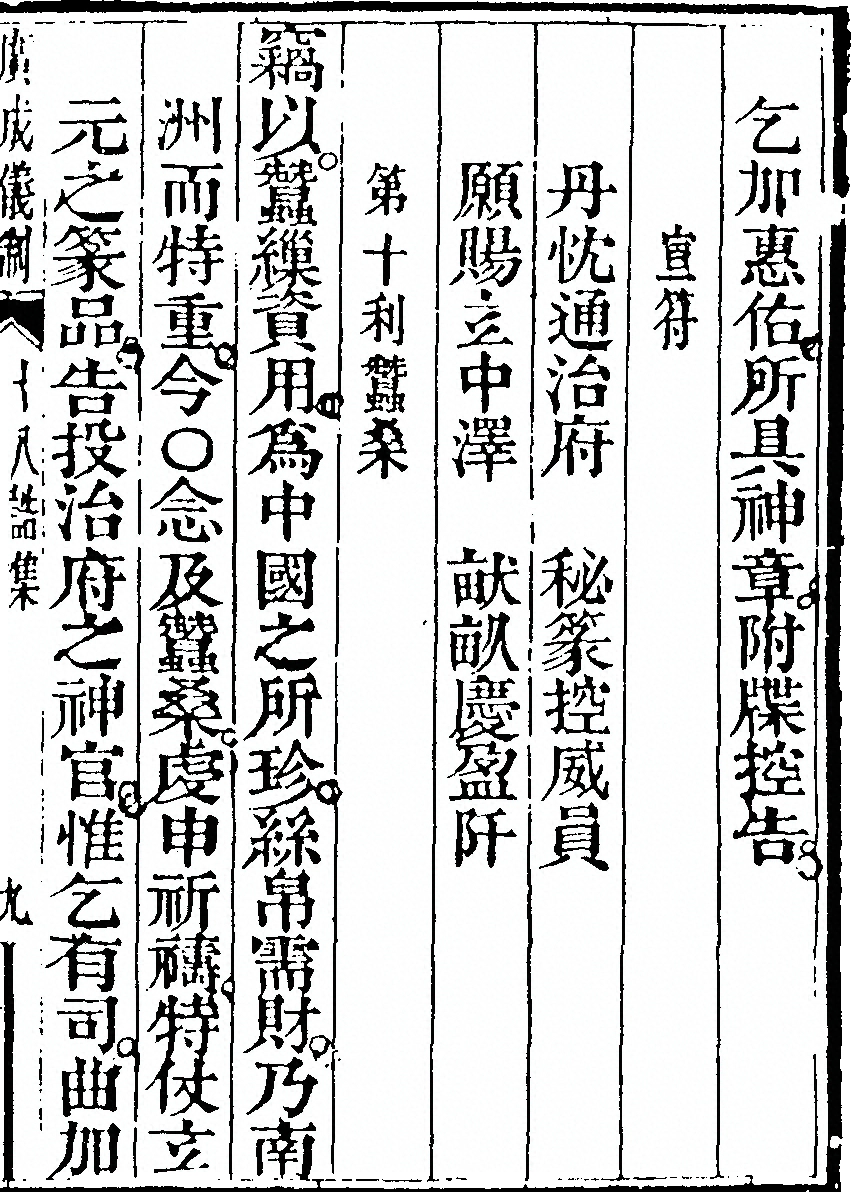 乞加惠佑所具神章附牒控告
宣符
丹忱通治府　秘篆控威員
願賜立中澤　畎畝慶盈阡
第十利蠶桑
竊以蠶繅資用爲中國之所珍絲帛需財乃南
洲而特重今〇念及蠶桑虔申祈禱特仗立
元之篆品告投治府之神官惟乞有司曲加
廣成儀制　十八誥集　九